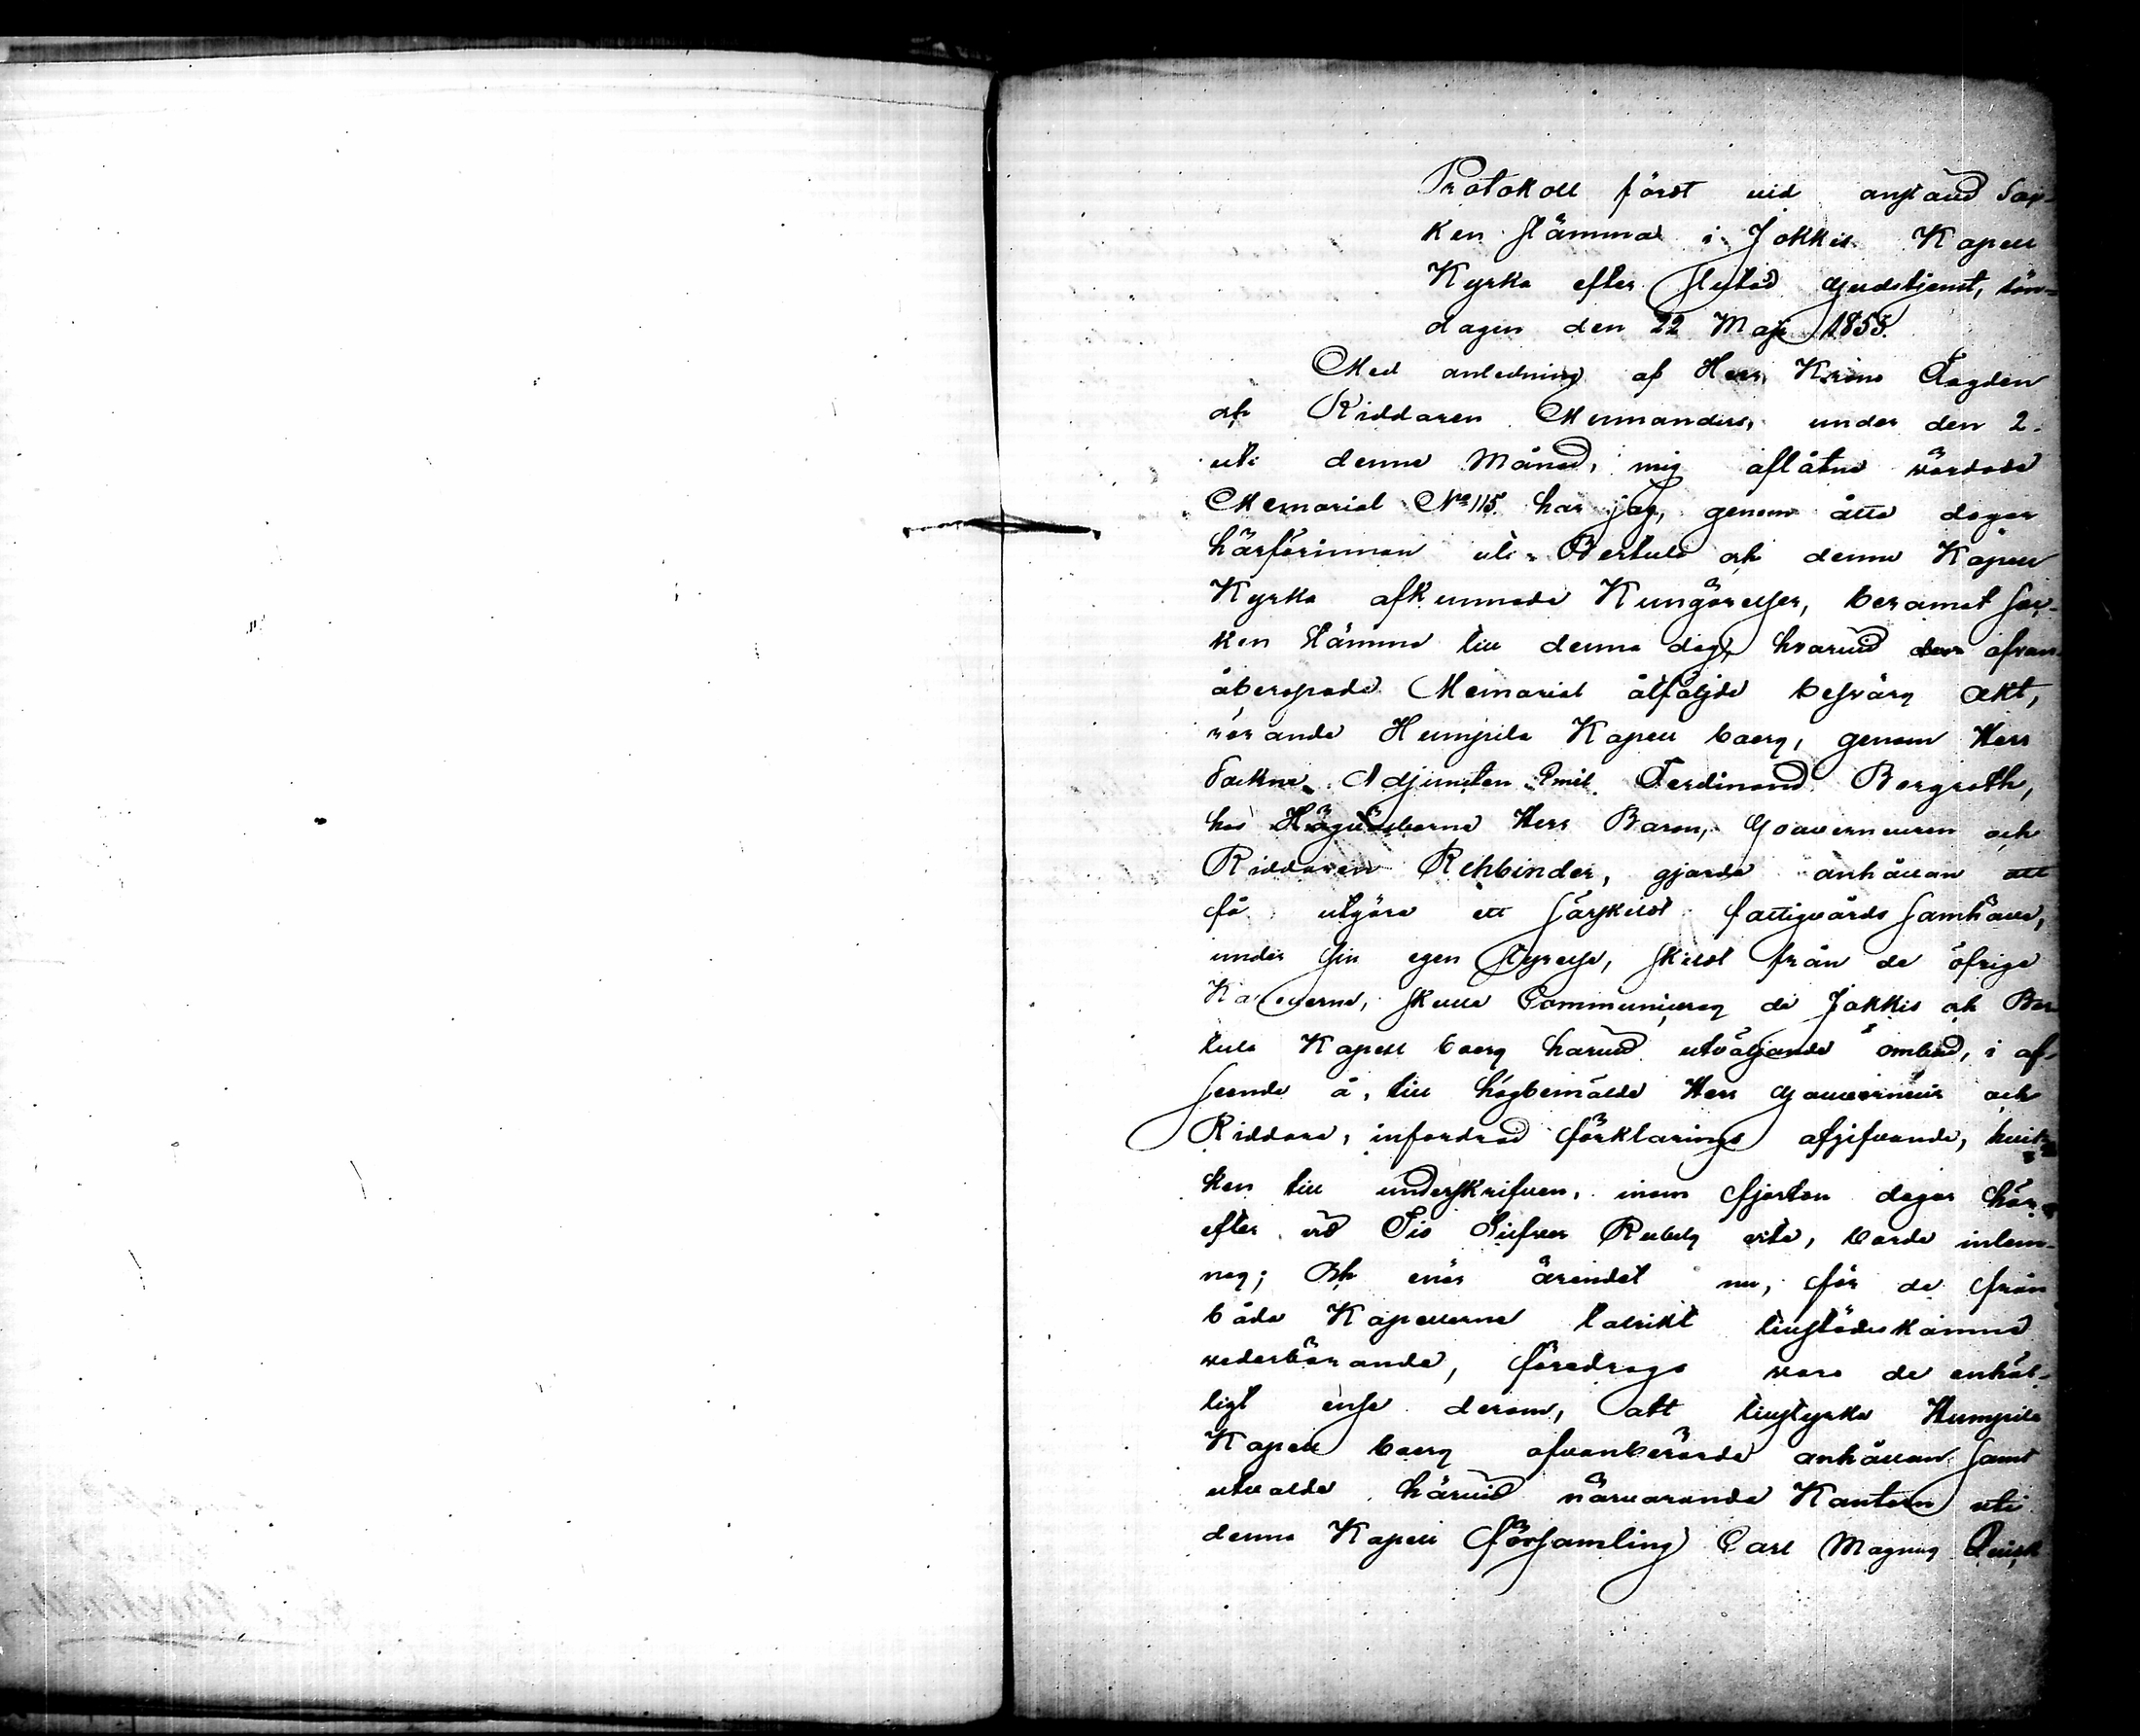 Protokoll fördt vid anstäld Soc-
ken stämma i Jokkis Kapell
Kyrka efter slutad gudstjenst, sön-
dagen den 22 Maji 1853.
Med anledning af Herr Krono Fogden
och Riddaren Munanders, under den 2.
uti denna Månad, mig aflåtna vördade
Memorial No 115. har jag, genom åtta dagar
härförinnan uti Pertula och denne Kapell
Kyrka afkunnade Kungörelser, beramat Soc-
ken stämma till denna dag, hvarvid den ofvan-
åberopade Memorial åtföljde besvärs Akt,
rörande Humpila Kapell boers, genom Herr
Sockne Adjuncten Emil Ferdinand Bergroth,
hos Högvälborne Herr Baron, Gouverneuren och
Riddaren Rehbinder, gjorda anhållan att
få utgöra ett särskildt fattigvårds samhälle,
under sin egen styrelse, skildt från de öfriga
Kapellerne, skulle Communiceras de Jokkis och Per-
tula Kapell boers härvid utväljande ombud, i af-
seende å, till högbemälde Herr Gouverneur och
Riddare, infordrad förklarings afgifvande, hvil-
ken till underskrifven, inom fjorton dagar här-
efter vid Tio Silfver Rubels vite, borde inlem-
nas; Och enär ärendet nu, för de från
båda Kapellerne talrikt tillstädeskomne
vederbörande, föredrogs voro de enhäl-
ligt ense derom, att tillstyrka Humpila
Kapell boers ofvanberörda anhållan samt
utvalde härvid närvarande Kantorn uti
denna Kapell församling Carl Magnus Quist